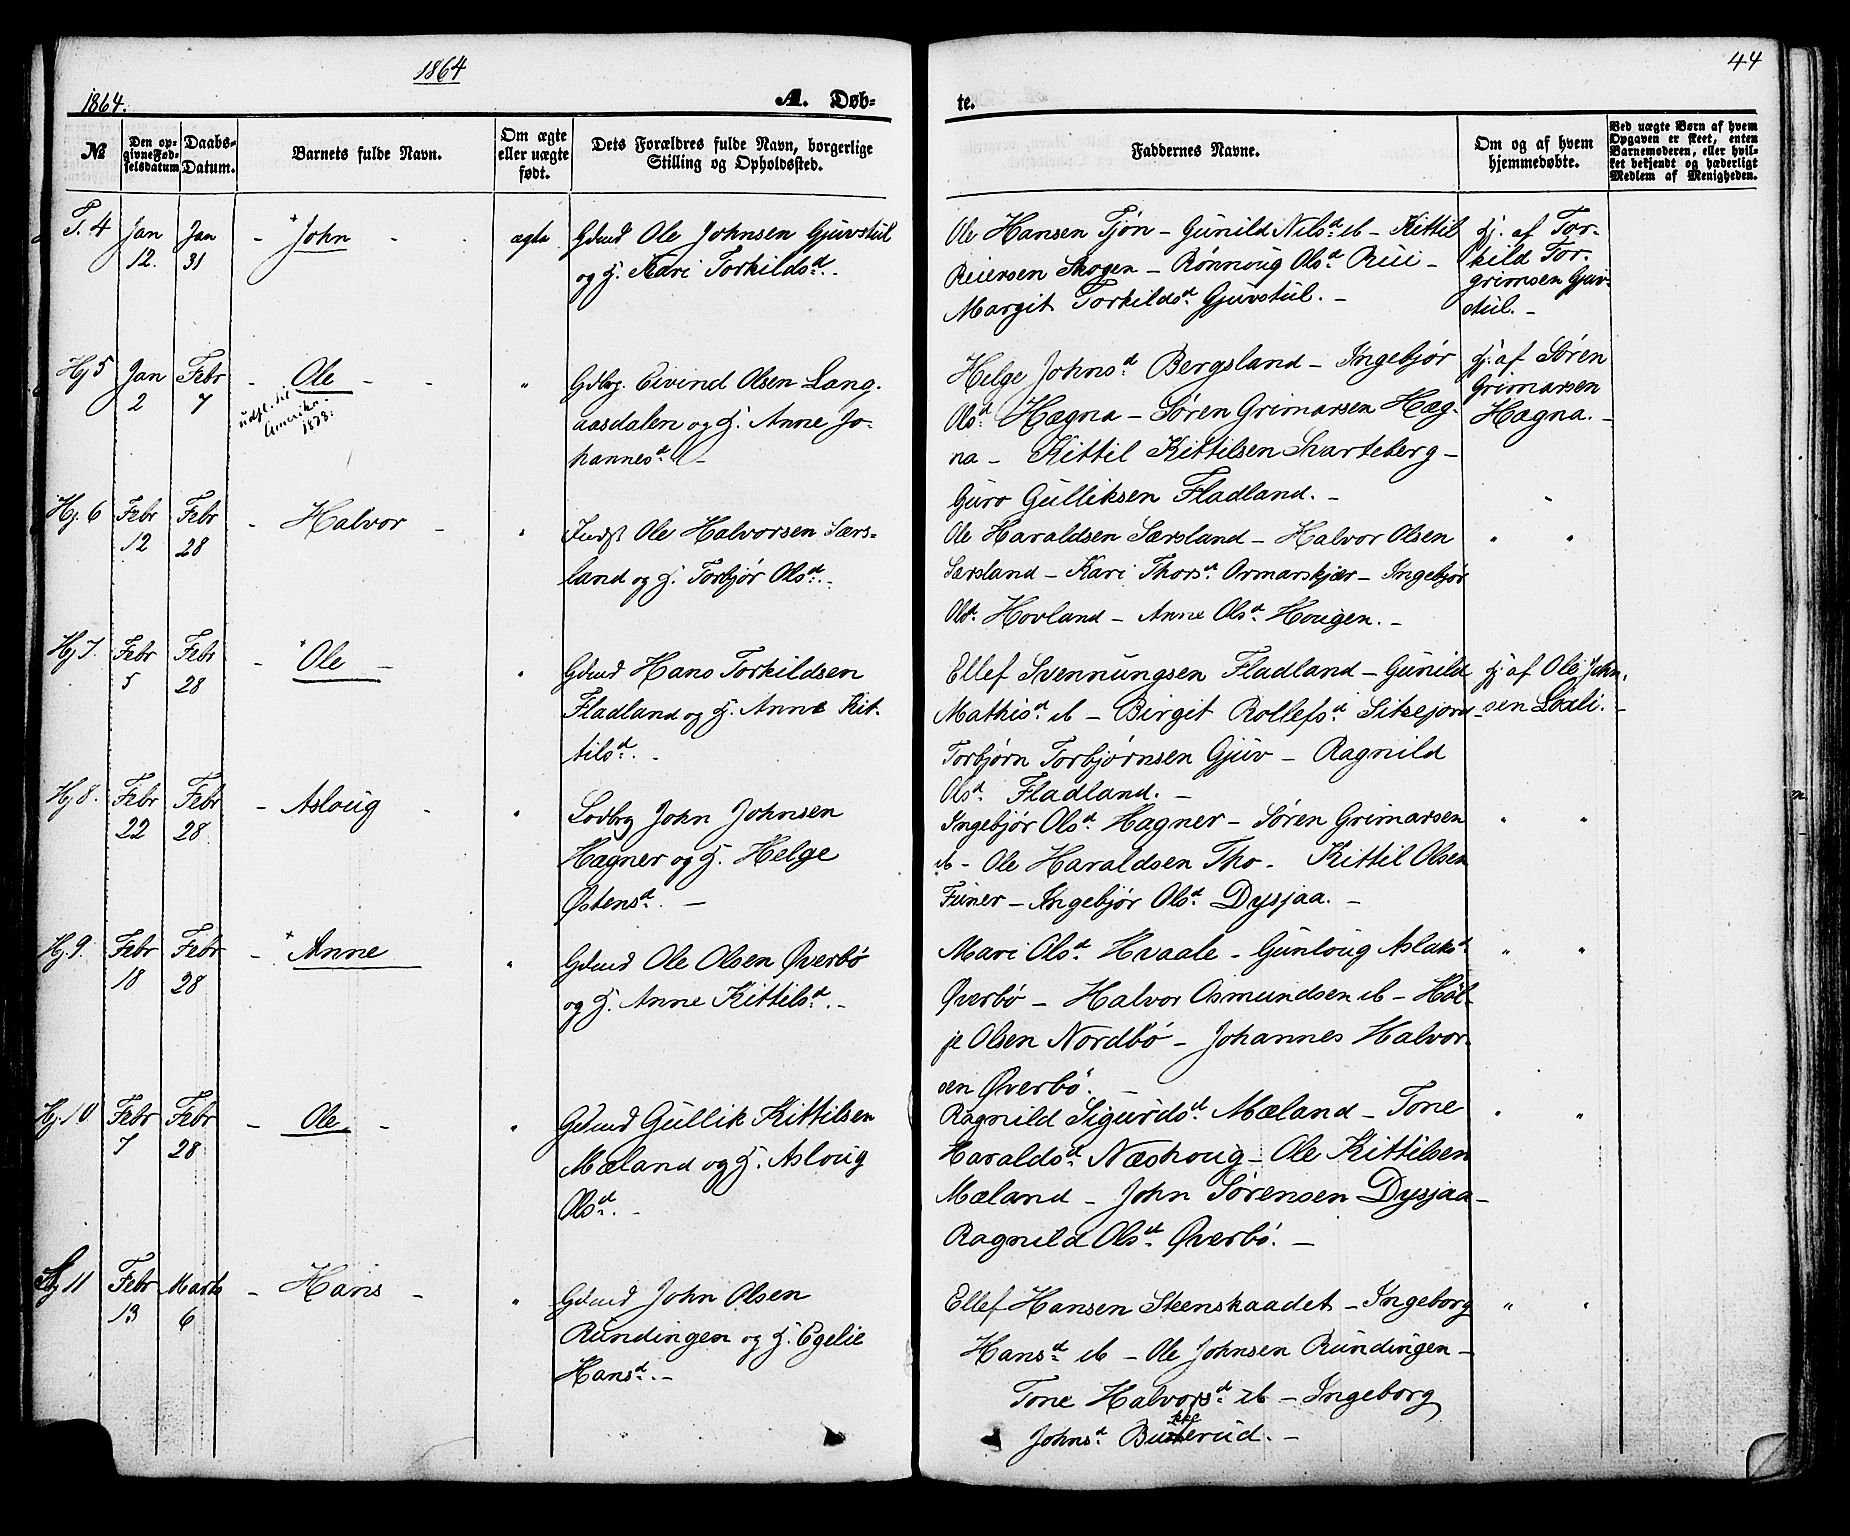 1864
44
1864.
A. Døb-
te.
№
Den op-
givne Fød-
selsdatum
Daabs-
Datum.
Barnets fulde Navn.
Om ægte
eller uægte
født.
Dets Forældres fulde Navn, borgerlige
Stilling og Opholdssted.
Faddernes Navne.
Om og af hvem
hjemmedøbte.
Ved uægte Børn af hvem
Opgaven er skeet, enten
Barnemoderen, eller hvil-
ket bekjendt og hæderligt
Medlem af Menigheden.
T. 4
Jan
12.
Jan
31
- John - -
ægte
Gdmd Ole Johnsen Gjuvstul
og H. Kari Torkildsd. -
Ole Hansen Tjøn - Gunild Nilsd ib - Kittil
Reiersen Skogen - Rønnoug Olsd Rui -
Margit Torkildsd Gjuvstul. -
Hj. af Tor-
kild Tor-
grimsen Gjuv-
stul. -
Hj 5
Jan
2
Febr
7
- Ole - -
udfl. til
Amerika
1878.
"
Gdbrg. Eivind Olsen Lang-
aasdalen og H. Anne Jo-
hannesd. -
Helge Johnsd Bergsland - Ingebjør
Olsd Hægna - Søren Grimarsen Hæg-
na - Kittil Kittilsen Skarteberg -
Guro Gulliksen Fladland. -
Hj. af Søren
Grimarsen
Hægna. -
"
Hj. 6
Febr
12
Febr
28
- Halvor -
"
Indst Ole Halvorsen Særs-
land og H. Torbjør Olsd. -
Ole Haraldsen Særsland - Halvor Olsen
Særsland - Kari Thorsd Ormarskjær - Ingebjør
Olsd Hovland - Anne Olsd Hougen. -
" "
Hj 7.
Febr
5
Febr
28
- Ole -
"
Gdmd Hans Torkildsen
Fladland og H. Anne Kit-
tilsd. -
Ellef Svennungsen Fladland - Gunild
Mathisd ib - Birgit Rollefsd Sitsejord -
Torbjørn Torbjørnsen Gjuv - Ragnild
Olsd Fladland. -
Hj af Ole John-
sen Lxxli. -
Hj 8.
Febr
22
Febr
28
- Asloug -
"
Lodbrg John Johnsen
Hægner og H. Helge
Østensd. -
Ingebjør Olsd Hagner - Søren Grimarsen
ib - Ole Haraldsen Tho - Kittil Olsen
Funer - Ingebjør Olsd Dysjaa. -
" "
Hj 9.
Febr
18
Febr
28
- Anne
"
Gdmd Ole Olsen Øverbø
og H. Anne Kittilsd. -
Mari Olsd Hvaale - Gunloug Aslaksd
Øverbø - Halvor Osmundsen ib - Høl-
je Olsen Nordbø - Johannes Halvor-
sen Øverbø. -
" "
Hj. 10
Febr
7
Febr
28
- Ole -
"
Gdmd Gullik Kittilsen
Mæland og H. Asloug
Olsd. -
Ragnild Sigurdsd Mæland - Tone
Haraldsd Næshoug - Ole Kittilsen
Mæland - John Sørensen Dysjaa -
Ragnild Olsd Øverbø. -
" "
11
Febr
13
Marts
6
- Hans -
"
Gdmd John Olsen
Rundingen og H. Egelie
Hansd. -
Ellef Hansen Steenskaadet - Ingeborg
Hansd ib - Ole Johnsen Rundingen -
Tone Halvorsd ib - Ingeborg
Johnsd Bukkerud. -
" "